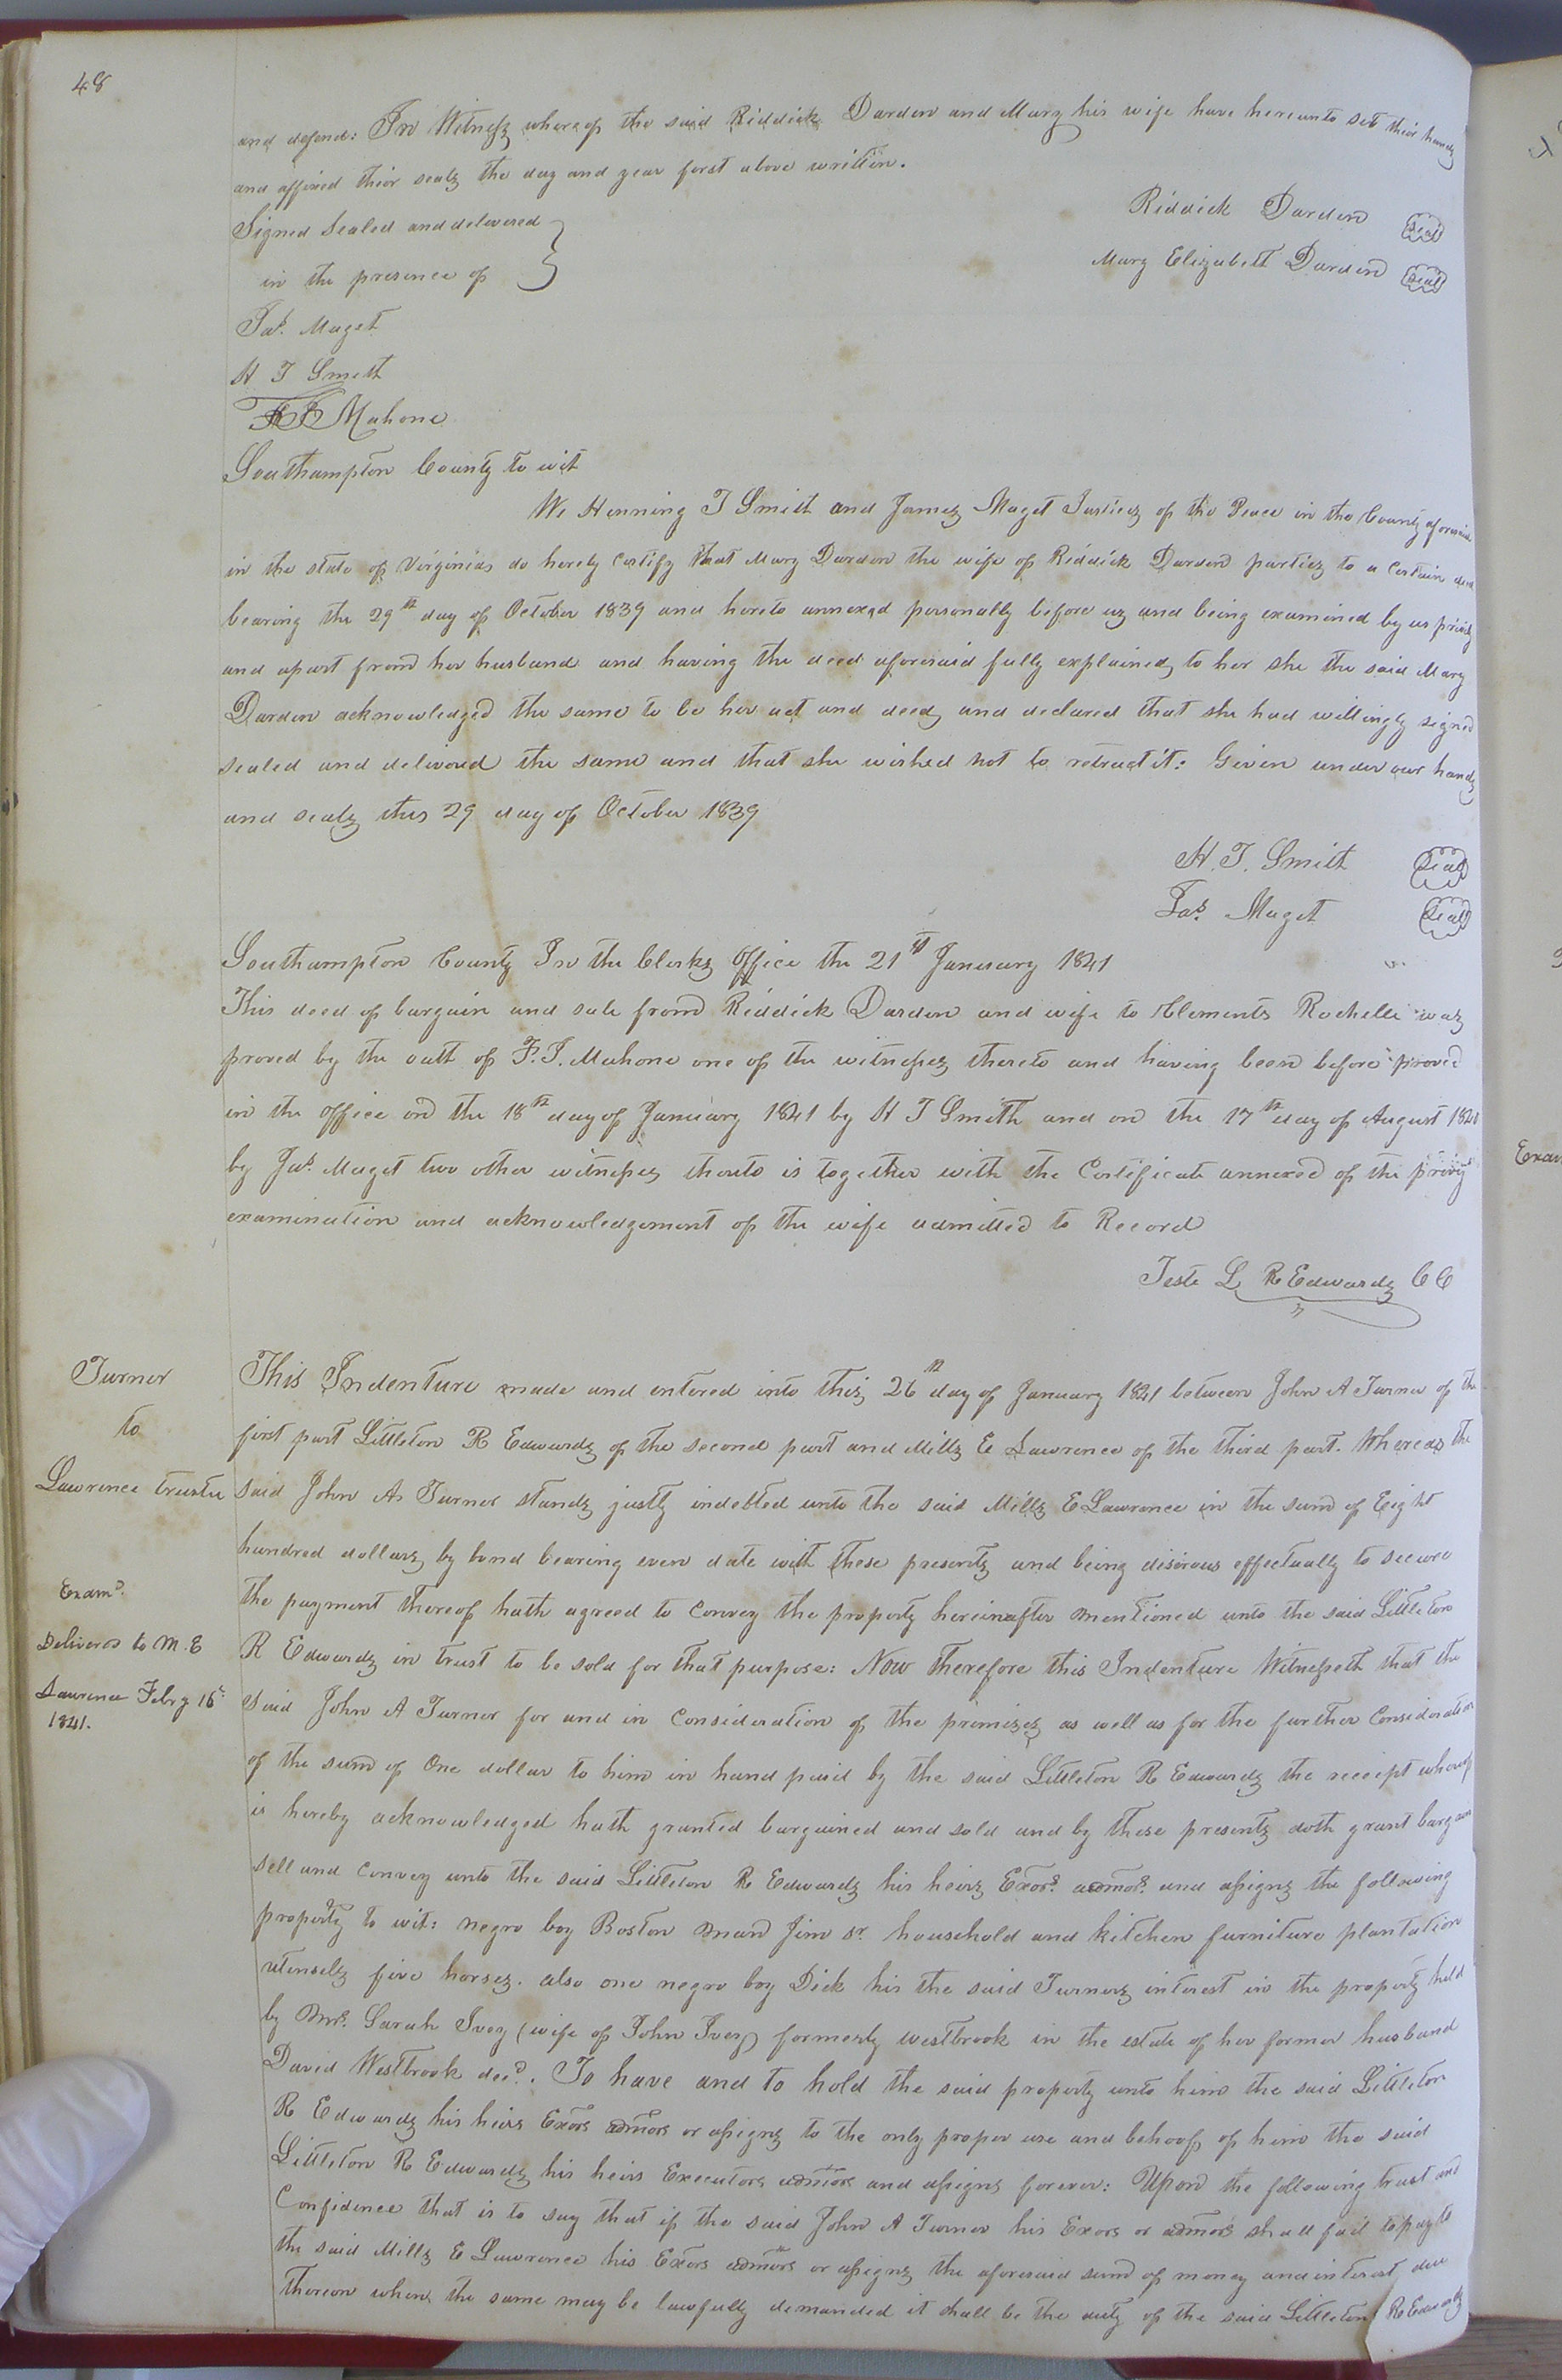 48
and defend: In Witness whereof the said Riddick Darden and Mary his wife have hereunto set their hands
and affixed their seals the day and year first above written.
Signed Sealed and delivered
in the presence of
Riddick Darden Seal
Mary Elizabeth Darden Seal
Jas. Maget
H T Smith
F J Mahone
Southampton County to wit
We Henning T Smith and James Maget Justices of the Peace in the County aforesaid
in the state of Virginia do hereby Certify that Mary Darden the wife of Riddick Darden parties to a Certain deed
bearing the 29th day of October 1839 and hereto annexed personally before us and being examined by us privily
and apart from her husband and having the deed aforesaid fully explained to her she the said Mary
Darden acknowledged the same to be her act and deed and declared that she had willingly signed
sealed and delivered the same and that she wished not to retract it: Given under our hands
and seals this 29 day of October 1839
H. T. Smith Seal
Jas. Maget Seal
Southampton County In the Clerks Office the 21st January 1841
This deed of bargain and sale from Riddick Darden and wife to Clements Rochelle was
proved by the oath of F. J. Mahone one of the witnesses thereto and having been before proved
in the office on the 18th day of January 1841 by H T Smith and on the 17th day of August 1840
by Jas. Maget two other witnesses thereto is together with the Certificate annexed of the privy
examination and acknowledgement of the wife admitted to Record
Teste L R Edwards CC
Turner
to
Lawrence trustee
Examd.
Delivered to M. E
Lawrence Febry 16th
1841.
This Indenture made and entered into this 26th day of January 1841 between John A Turner of the
first part Littleton R Edwards of the second part and Mills E Lawrence of the third part. Whereas the
said John A Turner stands justly indebted unto the said Mills E Lawrence in the sum of Eight
hundred dollars by bond bearing even date with these presents and being disirous effectually to secure
the payment thereof hath agreed to Convey the property hereinafter mentioned unto the said Littleton
R Edwards in trust to be sold for that purpose: Now Therefore this Indenture Witnesseth that the
said John A Turner for and in Consideration of the premises as well as for the further Consideration
of the sum of One dollar to him in hand paid by the said Littleton R Edwards the receipt whereof
is hereby acknowledged hath granted bargained and sold and by these presents doth grant bargain
sell and Convey unto the said Littleton R Edwards his heirs Exors. admors. and assigns the following
property to wit: negro boy Boston man Jim Sr. household and kitchen furniture plantation
utensils five horses. also one negro boy Dick his the said Turners interest in the property held
by Mrs. Sarah Ivey (wife of John Ivey) formerly westbrook in the estate of her former husband
David Westbrook decd. To have and to hold the said property unto him the said Littleton
R Edwards his heirs Exors admors or assigns to the only proper use and behoof of him the said
Littleton R Edwards his heirs Executors admors and assigns forever: Upon the following trust and
Confidence that is to say that if the said John A Turner his Exors or admors shall fail to pay to
the said Mills E Lawrence his Exors admors or assigns the aforesaid sum of money and interest due
thereon when the same may be lawfully demanded it shall be the duty of the said Littleton R Edwards